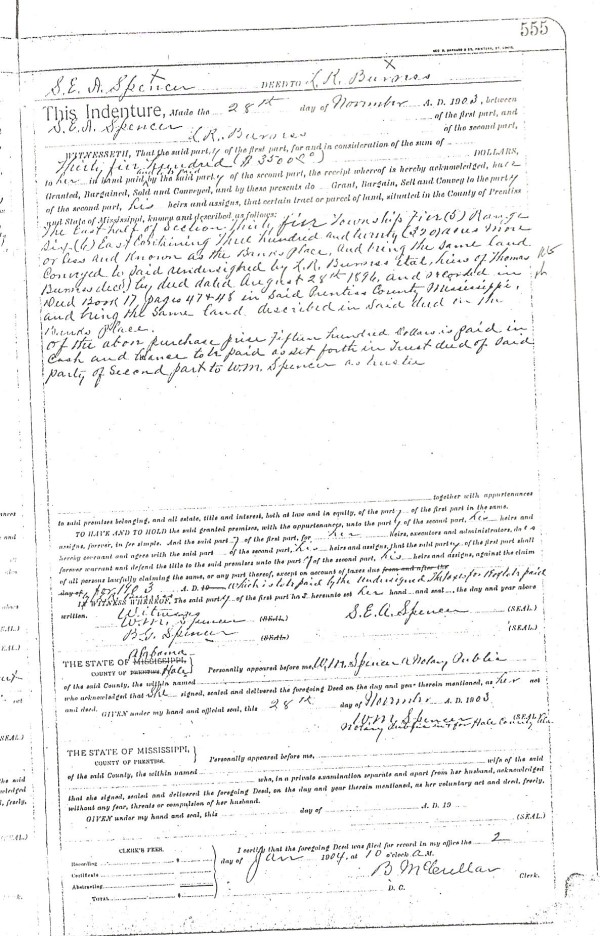 555
S.E.A. Spencer DEED TO L.R. Burress
This Indenture, Made the 28th day of November A. D. 1903, between
S.E.A. Spencer of the first part, and
L.R. Burress of the second part,
WITNESSETH, That the said party of the first part, for and in consideration of the sum of
Thirty five Hundred ($3500.00) DOLLARS,
to her in hand paid by the said party of the second part, the receipt whereof is hereby acknowledged, have
Granted, Bargained, Sold and Conveyed, and by these presents do Grant, Bargain, Sell and Convey to the party
of the second part, his heirs and assigns, that certain tract or parcel of land, situated in the County of Prentiss
and State of Mississippi, known and described as follows:
The East half of Section Thirty five Township Five (5) Range
Six (6) East Containing Three hundred and twenty (320) acres more
or less and Known as the Banks place, and being the same land
Conveyed to Said undersigned by L.R. Burress Etal, hiers of Thomas
Burress decd, by deed dated August 28th 1896, and recorded in
Deed Book 17, pages 47 & 48 in Said Prentiss County Mississippi,
and being the Same land described in Said deed on the
Banks place.
Of the above purchase price Fifteen hundred Dollars is paid in
Cash and balance to be paid as set forth in Trust deed of Said
party of Second part to W.M. Spencer as trustee
together with appurtenances
to said premises belonging, and all estate, title and interest, both at law and in equity, of the party of the first part in the same.
TO HAVE AND TO HOLD the said granted premises, with the appurtenances, unto the party of the second part, his heirs and
assigns, forever, in fee simple. And the said party of the first part, for her heirs, executors and administrators, do
hereby covenant and agree with the said part of the second part, his heirs and assigns, that the said party of the first part shall
forever warrant and defend the title to the said premises unto the party of the second part, his heirs and assigns, against the claim
of all persons lawfully claiming the same, or any part thereof, except on account of taxes due from and after the
day of for 1903 A. D. 19 which is to be paid by the undersigned
IN WITNESS WHEREOF, The said party of the first part has hereunto set her hand and seal the day and year above
written. Witness
W.M. Spencer (SEAL) S.E.A. Spencer (SEAL)
B.G. Spencer (SEAL) (SEAL)
THE STATE OF MISSISSIPPI, Alabama
COUNTY OF PRENTISS Hale Personally appeared before me, W.M. Spencer a Notary Public
of the said County, the within named
who acknowledged that She signed, sealed and delivered the foregoing Deed on the day and year therein mentioned, as her act
and deed.
GIVEN under my hand and official seal, this 28th day of November A. D. 1903
W.M. Spencer (SEAL)
Notary Public in & for Hale County Ala
THE STATE OF MISSISSIPPI,
COUNTY OF PRENTISS. Personally appeared before me, wife of the said
of the said County, the within named
who, in a private examination separate and apart from her husband, acknowledged
that she signed, sealed and delivered the foregoing Deed, on the day and year therein mentioned, as her voluntary act and deed, freely,
without any fear, threats or compulsion of her husband.
GIVEN under my hand and seal, this day of A. D. 19
(SEAL.)
CLERK'S FEES.
Recording $
Certificate
Abstracting
TOTAL $
I certify that the foregoing Deed was filed for record in my office the 2
day of Jan 1904, at 10 o'clock A.M.
B McCullar Clerk.
D. C.